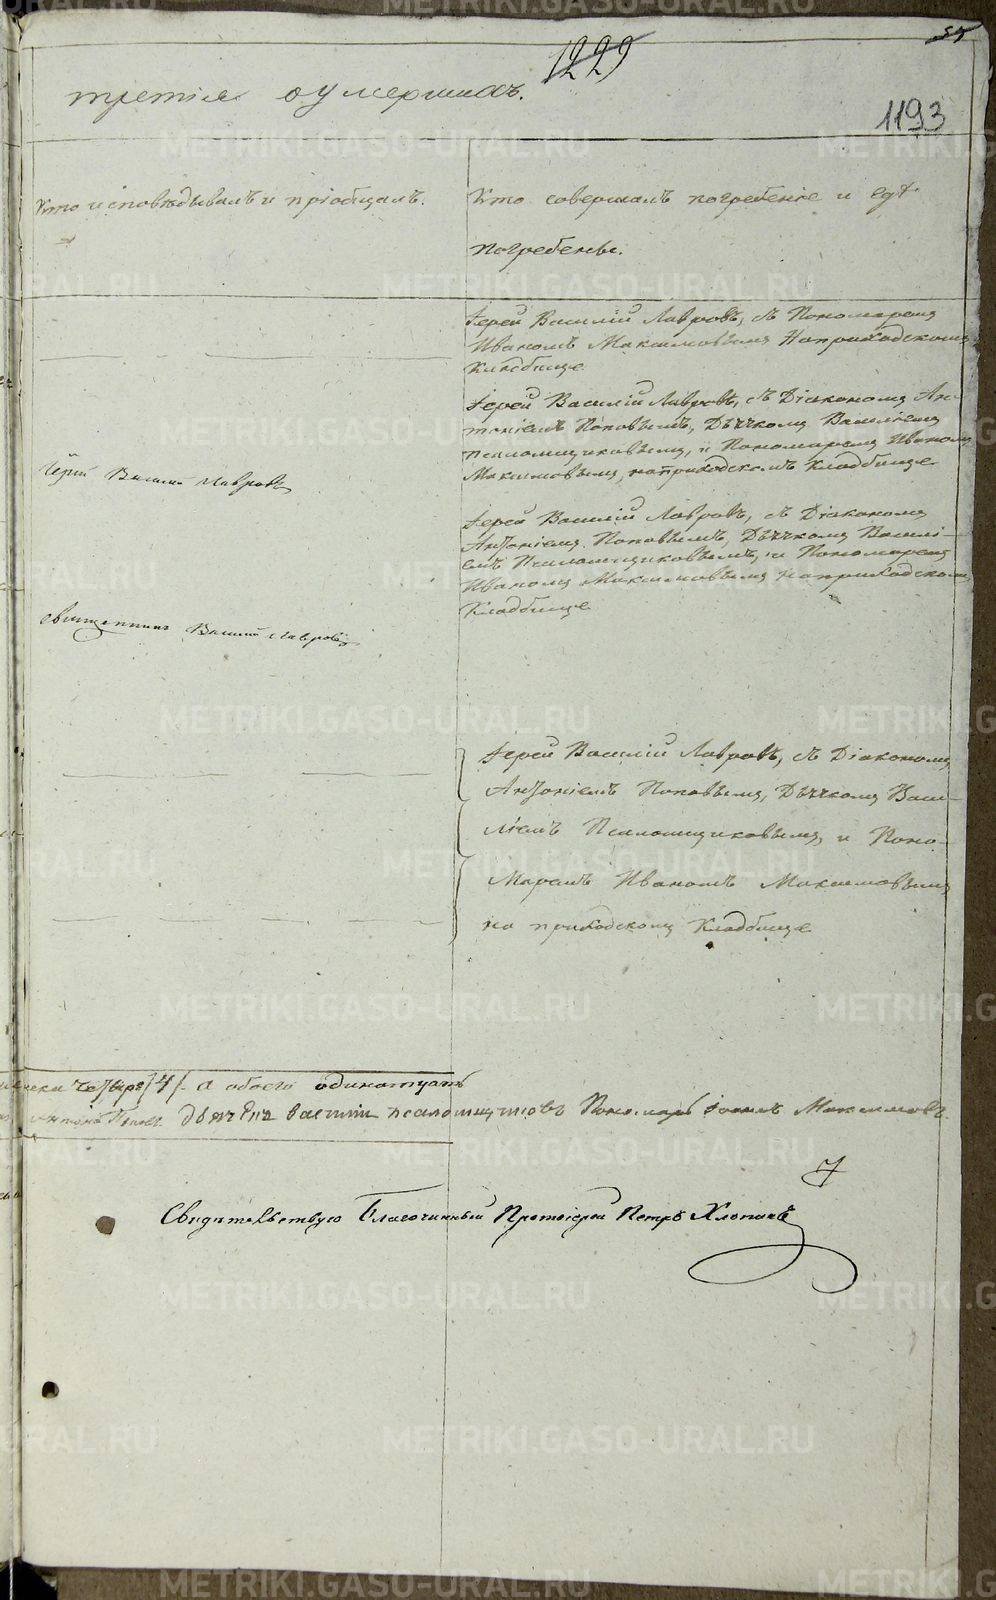 1229
третія о умершихъ.
1193
Кто исповѣдывалъ и пріобщалъ.
Кто совершалъ погребеніе и гдѣ
погребены.
Іерей Василій Лавровъ, съ Пономаремъ
Иваномъ Максимовымъ На приходскомъ
Кладбище
Іерей Василій Лавровъ, съ Діакономъ Ан-
тоніемъ Поповымъ, Дьячкомъ Василіемъ
Псаломщиковымъ, и Пономаремъ Иваномъ
Максимовымъ, на приходскомъ Кладбище
Іерей Василій Лавровъ
Іерей Василій Лавровъ, съ Діакономъ
Антоніемъ Поповымъ, Дьячкомъ Василі-
емъ Псаломщиковымъ, и Пономаремъ
Иваномъ Максимовымъ на приходскомъ
Кладбище
Священникъ Василій Лавровъ
Іерей Василій Лавровъ, съ Діакономъ
Антоніемъ Поповымъ, Дьячкомъ Васи-
ліемъ Псаломщиковымъ, и Поно-
Маремъ Иваномъ Максимовымъ
на приходскомъ Кладбище
четыре /4/. а обоего одинатцать
Поповъ Дьячекъ Василій Псаломщиковъ Пономарь Іоаннъ Максимовъ.
Свидѣтельствую Благочинный Протоіерей Петръ Хлопинъ
METRIKI.GASO-URAL.RU